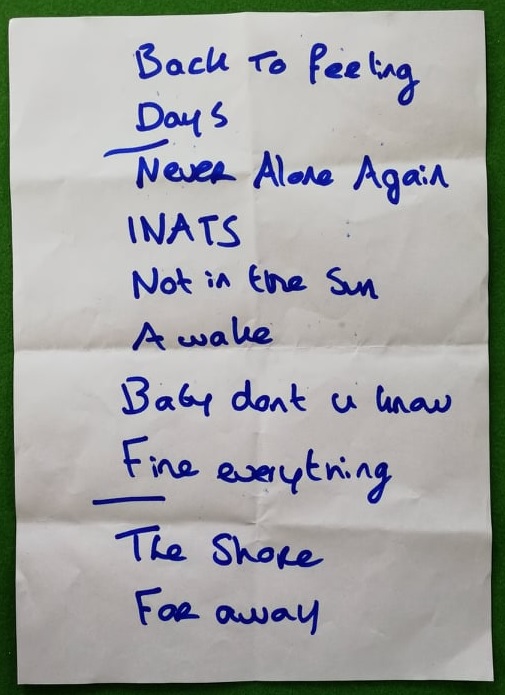 Back To feeling
Days
Never Alone Again
INATS
Not in the Sun
Awake
Baby dont u know
Fine everything
The Shore
Far away